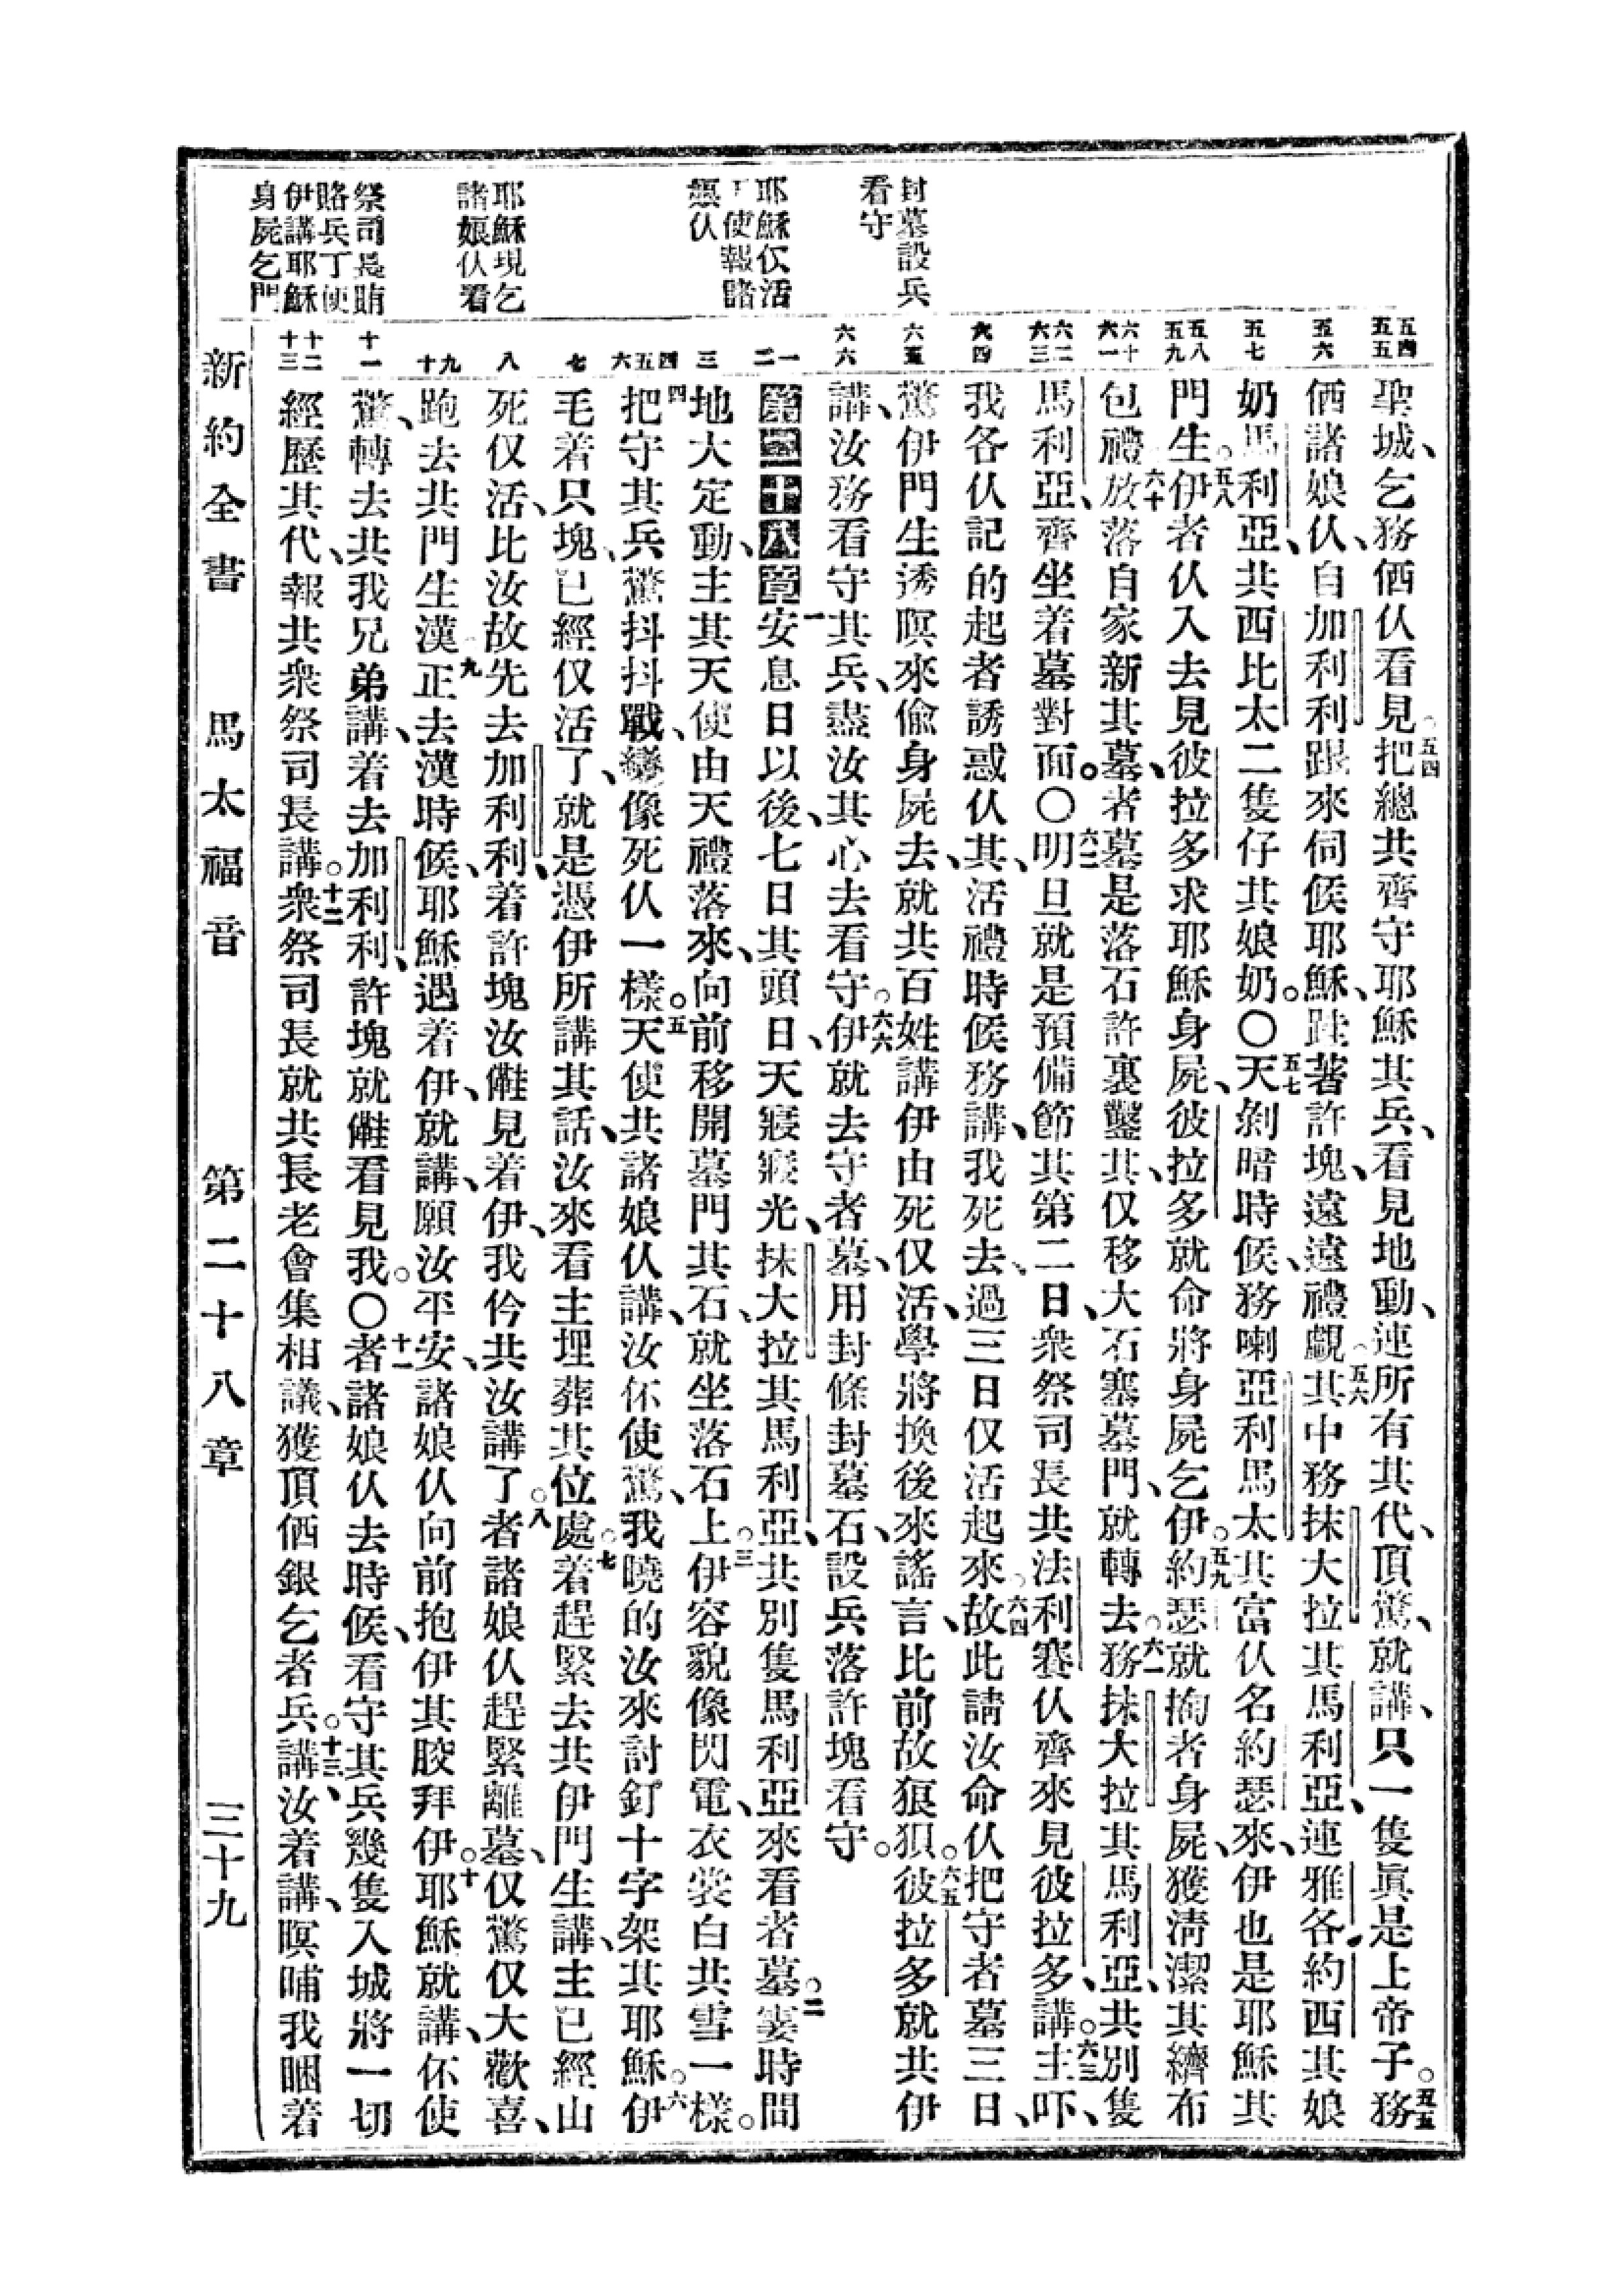 封墓設兵
看守
耶穌仅活
使報諸
娘仈
耶穌現乞
諸娘仈看
祭司長賄
賂兵丁使
伊講耶穌
身屍乞門
五四
五五
五六
五七
五八
五九
六十
六一
六二
六三
六四
六五
六六
一
二
三
四
五
六
七
八
九
十
十一
十二
十三
聖城、乞務俖仈看見。五四把總共齊守耶穌其兵、看見地動、連所有其代、頂驚、就講、只一隻眞是上帝子。五五務
俖諸娘仈、自加利利跟來伺候耶穌、跬著許塊、遠遠禮覷。五六其中務抹大拉其馬利亞、連雅各約西其娘
奶馬利亞、共西比太二隻仔其娘奶。〇五七天剆暗時候、務喇亞利馬太其富仈名約瑟來、伊也是耶穌其
門生。五八伊者仈入去見彼拉多求耶穌身屍、彼拉多就命將身屍乞伊。五九約瑟就掏者身屍、獲淸潔其纃布
包禮、六十放落自家新其墓、者墓是落石許裏鑿其、仅移大石塞墓門、就轉去。六一務抹大拉其馬利亞、共別隻
馬利亞、齊坐着墓對面。〇六二明旦就是預備節其第二日、衆祭司長共法利賽仈齊來見彼拉多、講。六三主吓、
我各仈記的起者誘惑仈其、活禮時候務講、我死去、過三日仅活起來。六四故此請汝命仈把守者墓三日、
驚伊門生透暝來偸身屍去、就共百姓講伊由死仅活、學將換後來謠言、比前故狼狽。六五彼拉多就共伊
講、汝務看守其兵、盡汝其心去看守。六六伊就去守者墓、用封條封墓石、設兵落許塊看守。
第二十八章一安息日以後、七日其頭日、天寢𥇦光、抹大拉其馬利亞、共別隻馬利亞來看者墓。二霎時間
地大定動、主其天使由天禮落來、向前移開墓門其石、就坐落石上。三伊容貌像閃電、衣裳白共雪一樣。
四把守其兵、驚抖抖戰、變像死仈一樣。五天使共諸娘仈講、汝伓使驚、我曉的汝來討釘十字架其耶穌。六伊
毛着只塊、已經仅活了、就是憑伊所講其話、汝來看主埋葬其位處。七着趕緊去共伊門生講、主已經由
死仅活、比汝故先去加利利、着許塊汝𠍲見着伊、我仱共汝講了。八者諸娘仈趕緊離墓、仅驚仅大歡喜、
跑去共門生漢。九正去漢時候、耶穌遇着伊、就講、願汝平安、諸娘仈向前抱伊其骹拜伊。十耶穌就講、伓使
驚、轉去共我兄弟講、着去加利利、許塊就𠍲看見我。〇十一者諸娘仈去時候、看守其兵幾隻入城將一切
經歷其代、報共衆祭司長講。十二衆祭司長就共長老會集相議、獲頂俖銀乞者兵。十三講、汝着講、暝晡我睏着
新約全書　馬太福音　第二十八章　三十九